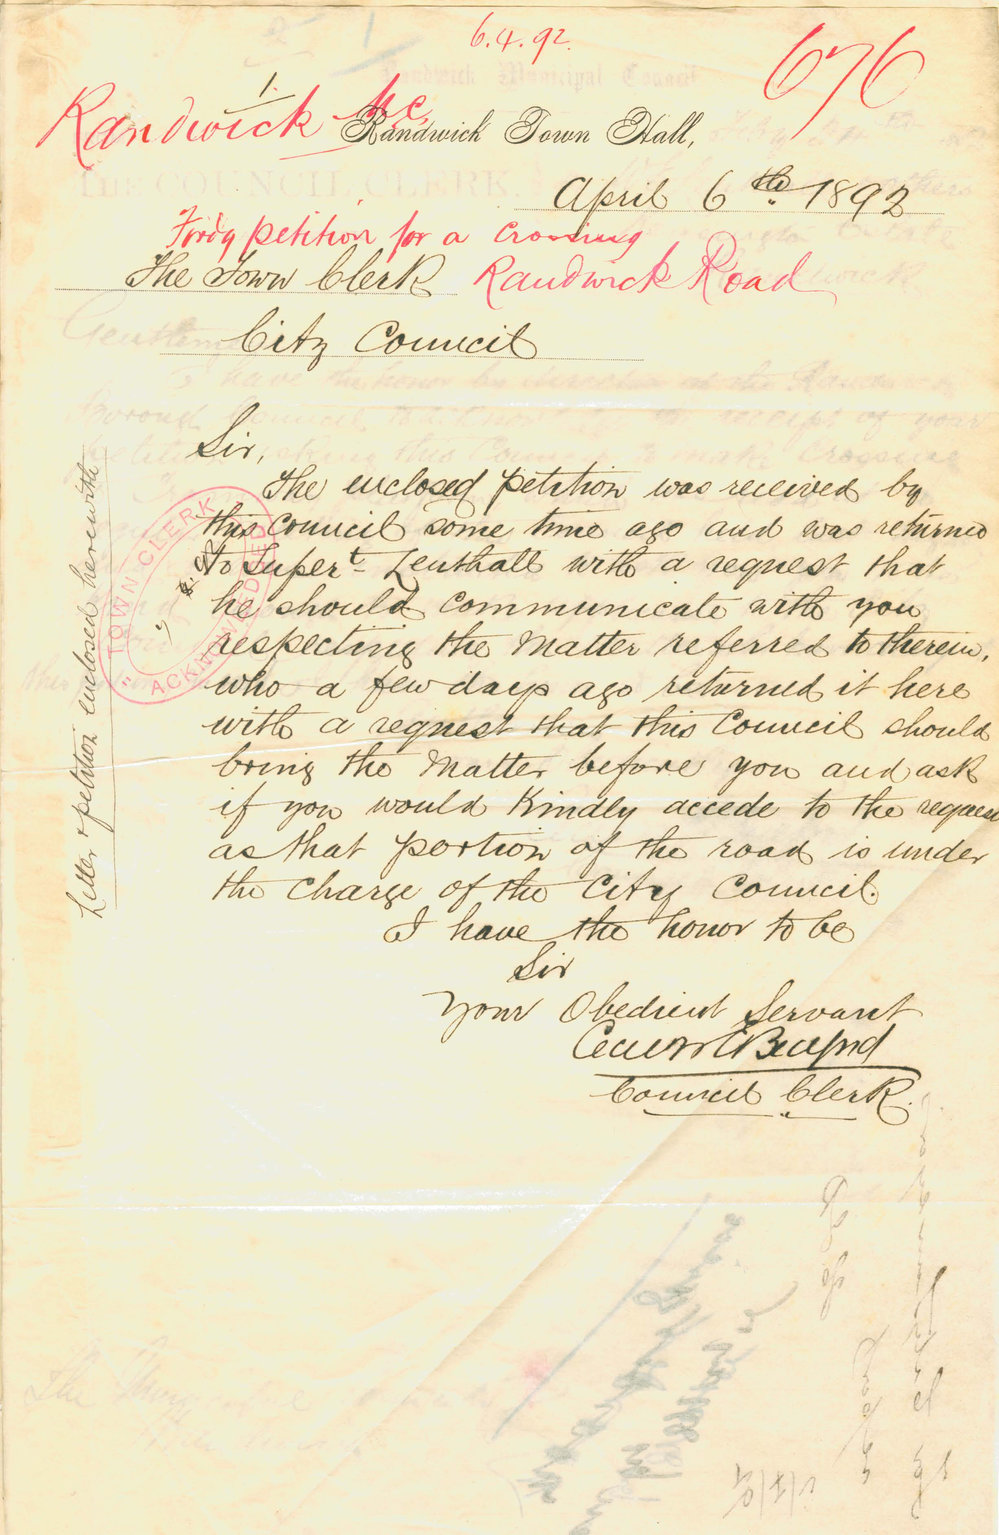 6.4.92.
676
1.
Randwick M.C.
Randwick Town Hall,
April 6th 1892
Fordg petition for a crossing
Randwick Road
The Town Clerk
City Council
Sir,
The enclosed petition was received by
this Council some time ago and was returned
to Supert. Lenthall with a request that
he should communicate with you
respecting the Matter referred to therein,
who a few days ago returned it here
with a request that this Council should
bring the Matter before you and ask
if you would Kindly accede to the request
as that portion of the road is under
the charge of the City Council.
I have the honor to be
Sir
Your Obedient Servant
Council Clerk.
Letter & petition enclosed herewith
TOWN CLERK
ACKNOWLEDGED